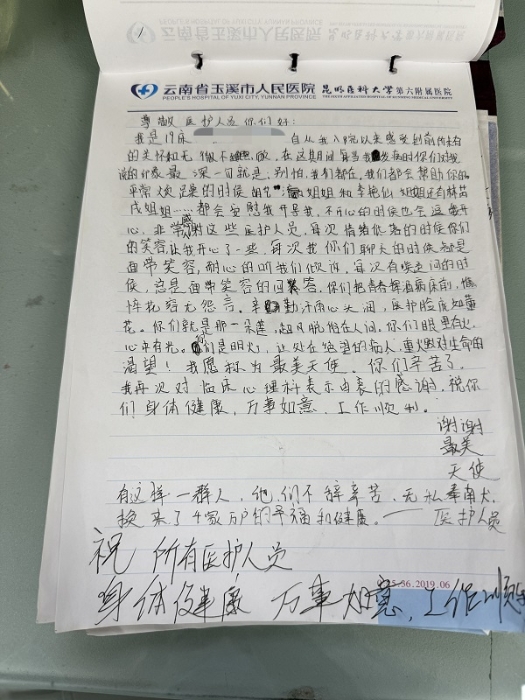 云南省玉溪市人民医院 昆明医科大学第六附属医院
PEOPLE'S HOSPITAL OF YUXI CITY, YUNNAN PROVINCE
尊敬的医护人员你们好:
我是19床 自从我入院以来感受到前所未有
的关怀和无微不至的 在这期间每当我发病时你们对我
说的印象最深一句就是,别怕,我们都在,我们都会帮助你的
平常烦躁的时候 姐姐和李艳仙姐姐还有林苗
成姐姐……都会安慰我开导我,不开心的时候也会逗我开
心,非常感谢这些医护人员,每次情绪低落的时候你们
的笑容让我开心了一些,每次我你们聊天的时候都是
面带笑容,耐心的听我们倾诉,每次有疑问的时
候,总是面带笑容的回答,你们把青春挥洒病床前,憔
悴花容无怨言。辛勤汗雨心头涧,医护脸庞如莲
花。你们就是那一朵莲,超凡脱俗在人间,你们眼里有火,
心中有光。你们是明火,让处在绝望的病人,重燃对生命的
渴望!我愿称为最美天使。你们辛苦了。
我再次对临床心理科表示由衷的感谢,祝你
们身体健康,万事如意,工作顺利。
谢谢
最美
天使
有这样一群人,他们不辞辛苦,无私奉献,
换来了千家万户的幸福和健康。——医护人员
祝 所有医护人员
36.2019.06
身体健康 万事如意,工作顺